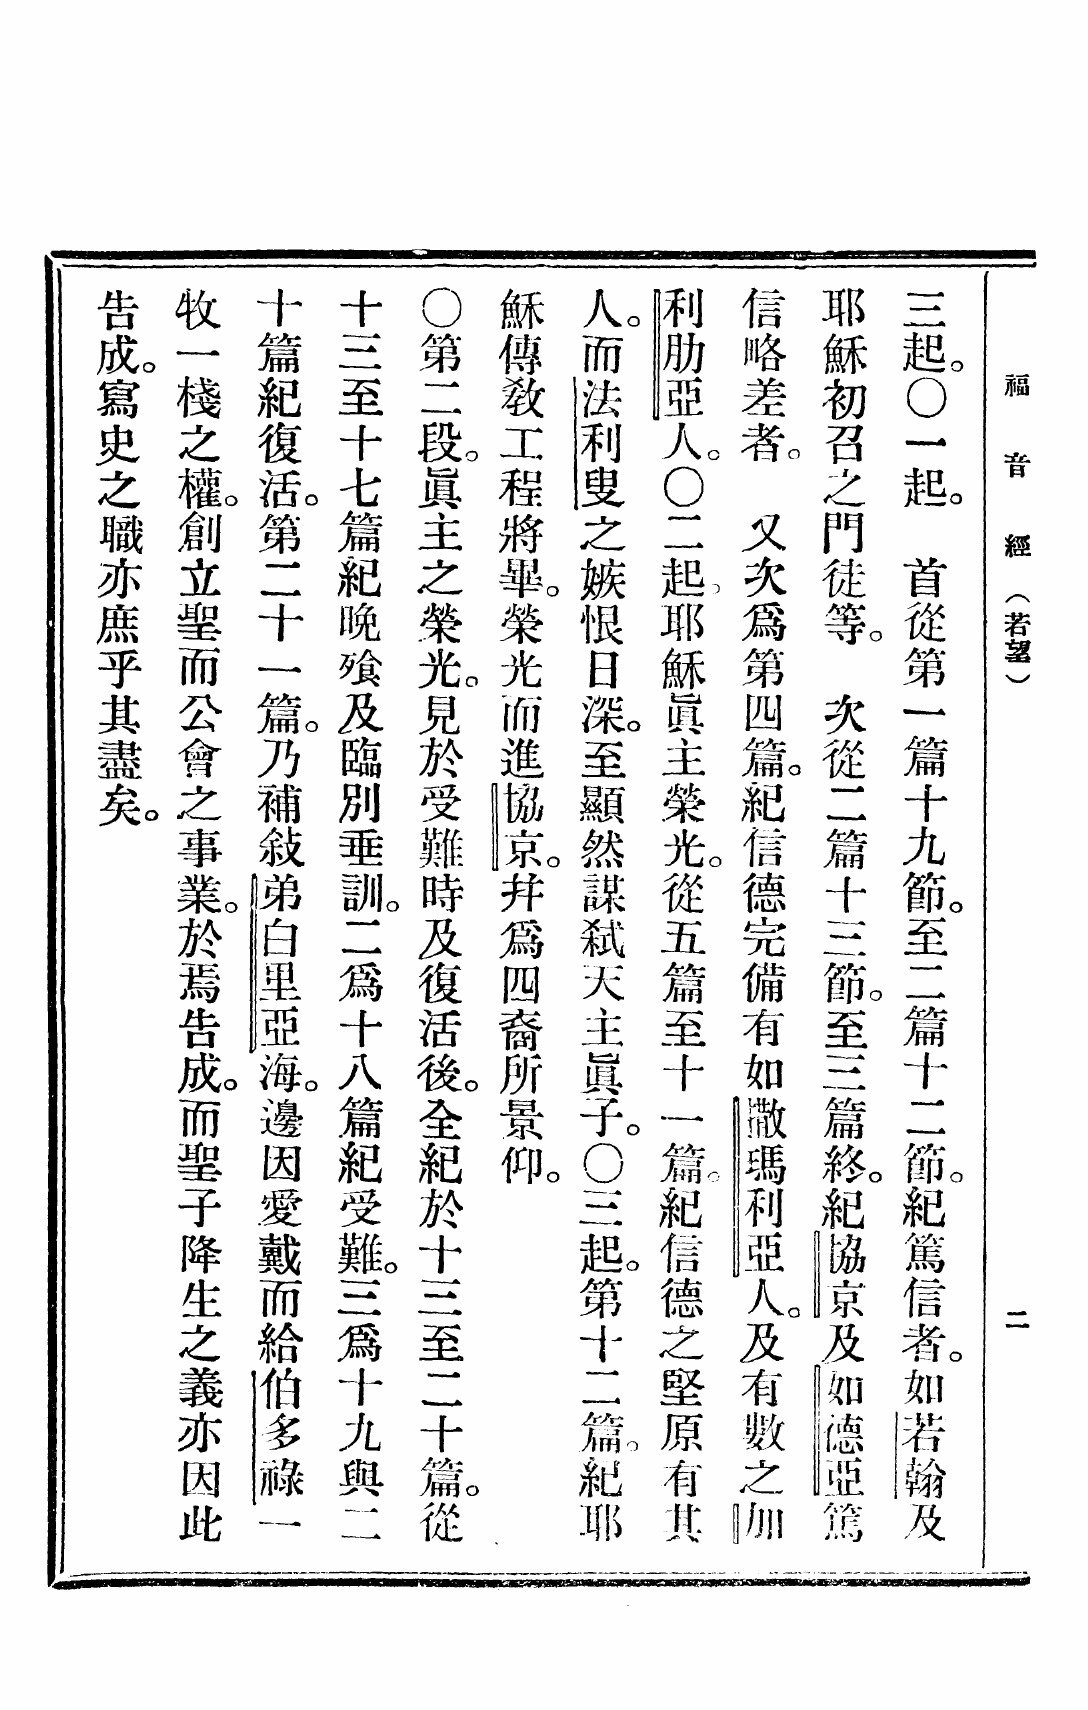 福音經（若望） 二
三起。〇一起。　首從第一篇十九節。至二篇十二節。紀篤信者。如若翰及
耶穌初召之門徒等。　次從二篇十三節。至三篇終。紀協京及如德亞篤
信略差者。　又次爲第四篇。紀信德完備有如撒瑪利亞人。及有數之加
利肋亞人。〇二起、耶穌眞主榮光。從五篇至十一篇。紀信德之堅原有其
人。而法利叟之嫉恨日深。至顯然謀弑天主眞子。〇三起。第十二篇。紀耶
穌傳敎工程將畢。榮光而進協京。幷爲四裔所景仰。
〇第二段。眞主之榮光。見於受難時及復活後。全紀於十三至二十篇。從
十三至十七篇紀晚飱及臨別垂訓。二爲十八篇紀受難。三爲十九與二
十篇紀復活。第二十一篇。乃補敍弟白里亞海。邊因愛戴而給伯多祿一
牧一棧之權。創立聖而公會之事業。於焉告成。而聖子降生之義亦因此
告成。寫史之職亦庶乎其盡矣。